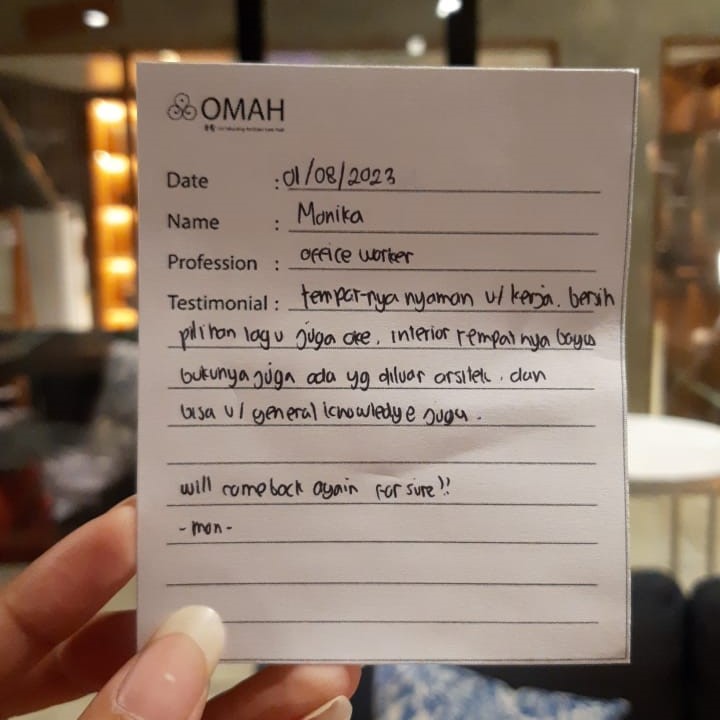 OMAH
Date : 01/08/2023
Name : Monika
Profession : office worker
Testimonial : tempat-nya nyaman u/ kerja. bersih
pilihan lagu juga oke. interior tempatnya bagus
bukunya juga ada yg diluar arsitek. dan
bisa u/ general knowledge juga.
will come back again for sure!!
-mon-